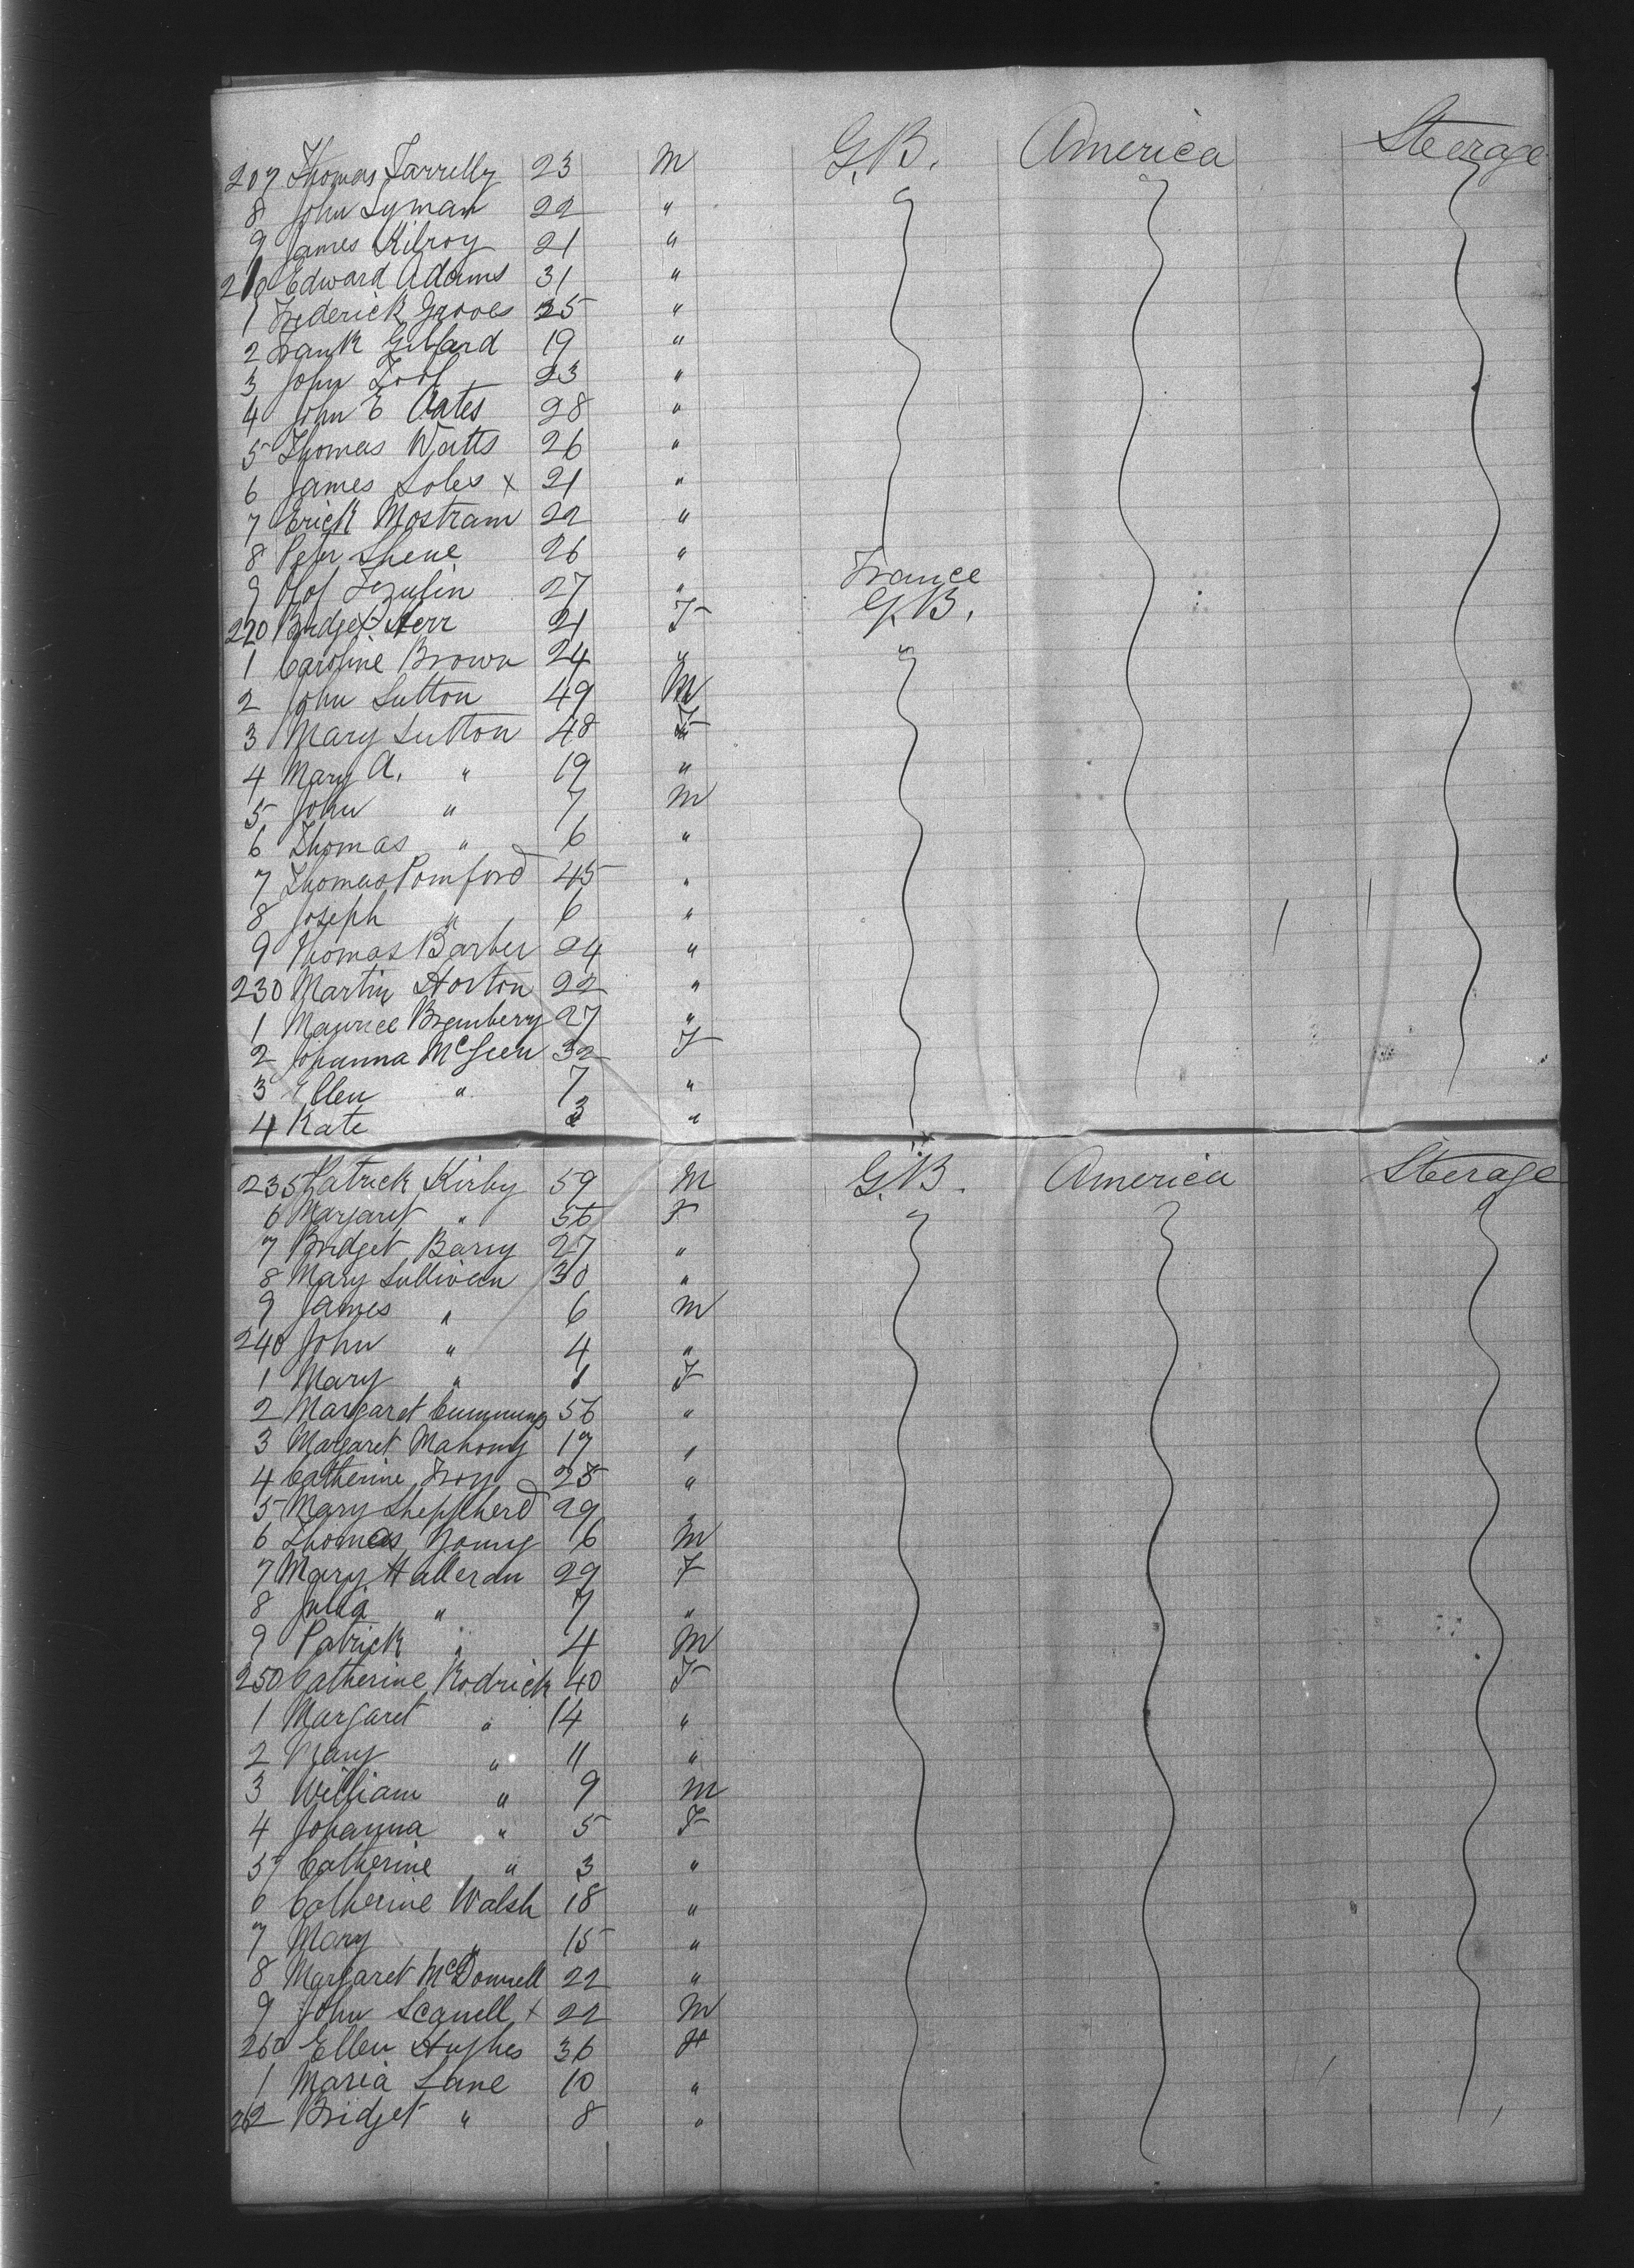 207 Thomas Farrelly 23 M G.B. America Steerage
8 John Lyman 22 "
9 James Kilroy 21 "
210 Edward Adams 31 "
1 Frederick Groves 25 "
2 Frank Gibbard 19 "
3 John 23 "
4 John E Oates 28 "
5 Thomas Watts 26 "
6 James Soles x 21 "
7 Erick Mostram 22 "
8 Peter Shene 26 "
9 Olof 27 " France
220 Bridget Kerr 21 F G.B.
1 Caroline Brown 24 "
2 John Sutton 49 M
3 Mary Sutton 48 F
4 Mary A. " 19 "
5 John " 7 M
6 Thomas " 6 "
7 Thomas Pomford 45 "
8 Joseph " 6 "
9 Thomas Barber 24 "
230 Martin Horton 22 "
1 Maurice 27 "
2 Johanna 32 F
3 Ellen " 7 "
4 Kate 3 "
235 Patrick Kirby 59 M G.B. America Steerage
6 Margaret " 56 F
7 Bridget Barry 27 "
8 Mary Sullivan 30 "
9 James " 6 M
240 John " 4 "
1 Mary " 1 F
2 Margaret Cummings 56 "
3 Margaret Mahony 17 "
4 Catherine Troy 25 "
5 Mary Shepperd 29
6 Thomas Young 16 M
7 Mary Halleran 29 F
8 Julia " 7 "
9 Patrick " 4 M
250 Catherine Rodrick 40 F
1 Margaret " 14 "
2 Mary " 11 "
3 William " 9 M
4 Johanna " 5 F
5 Catherine " 3 "
6 Catherine Walsh 18 "
7 Mary " 15 "
8 Margaret McDonnell 22 "
9 John Scanell x 22 M
260 Ellen Hughes 36 F
1 Maria Lane 10 "
262 Bridget " 8 "